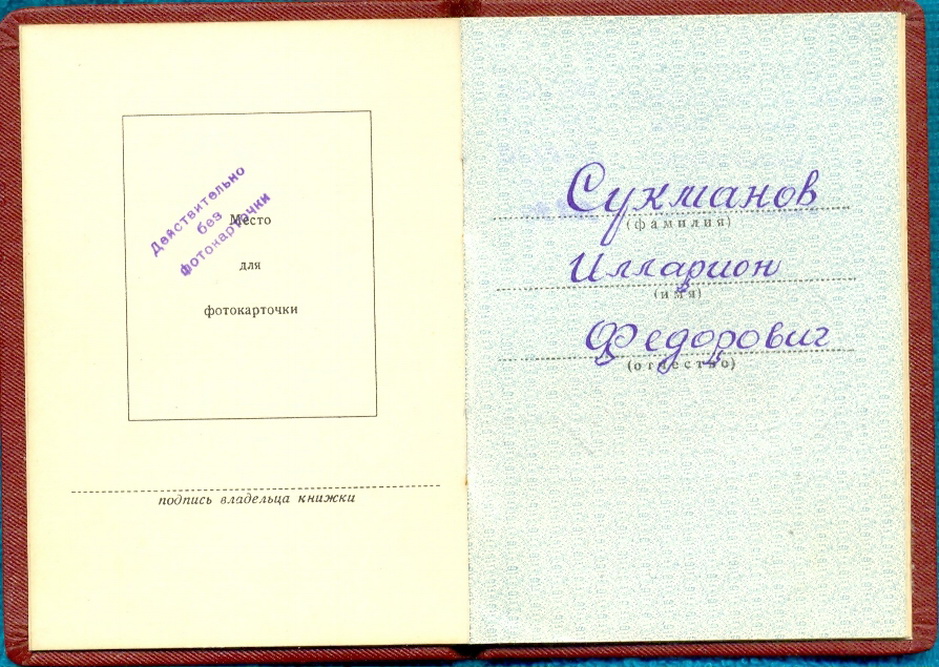 Действительно
без
фотокарточки
Место
для
фотокарточки
подпись владельца книжки
Сукманов
(фамилия)
Илларион
(имя)
Федорович
(отчество)